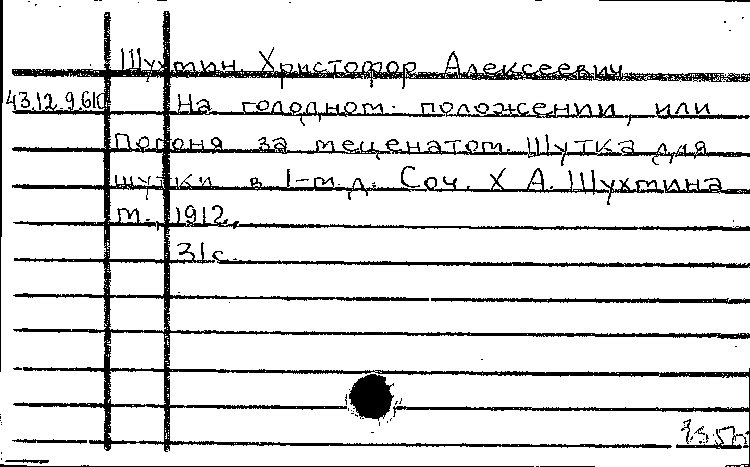 Шухтин Христофор Алексеевич
43.12.9.610 На голодном положении, или
погоня за меценатом. Шутка для
шутки в 1-м д. Соч. Х А. Шухтина
М., 1912,
31с.